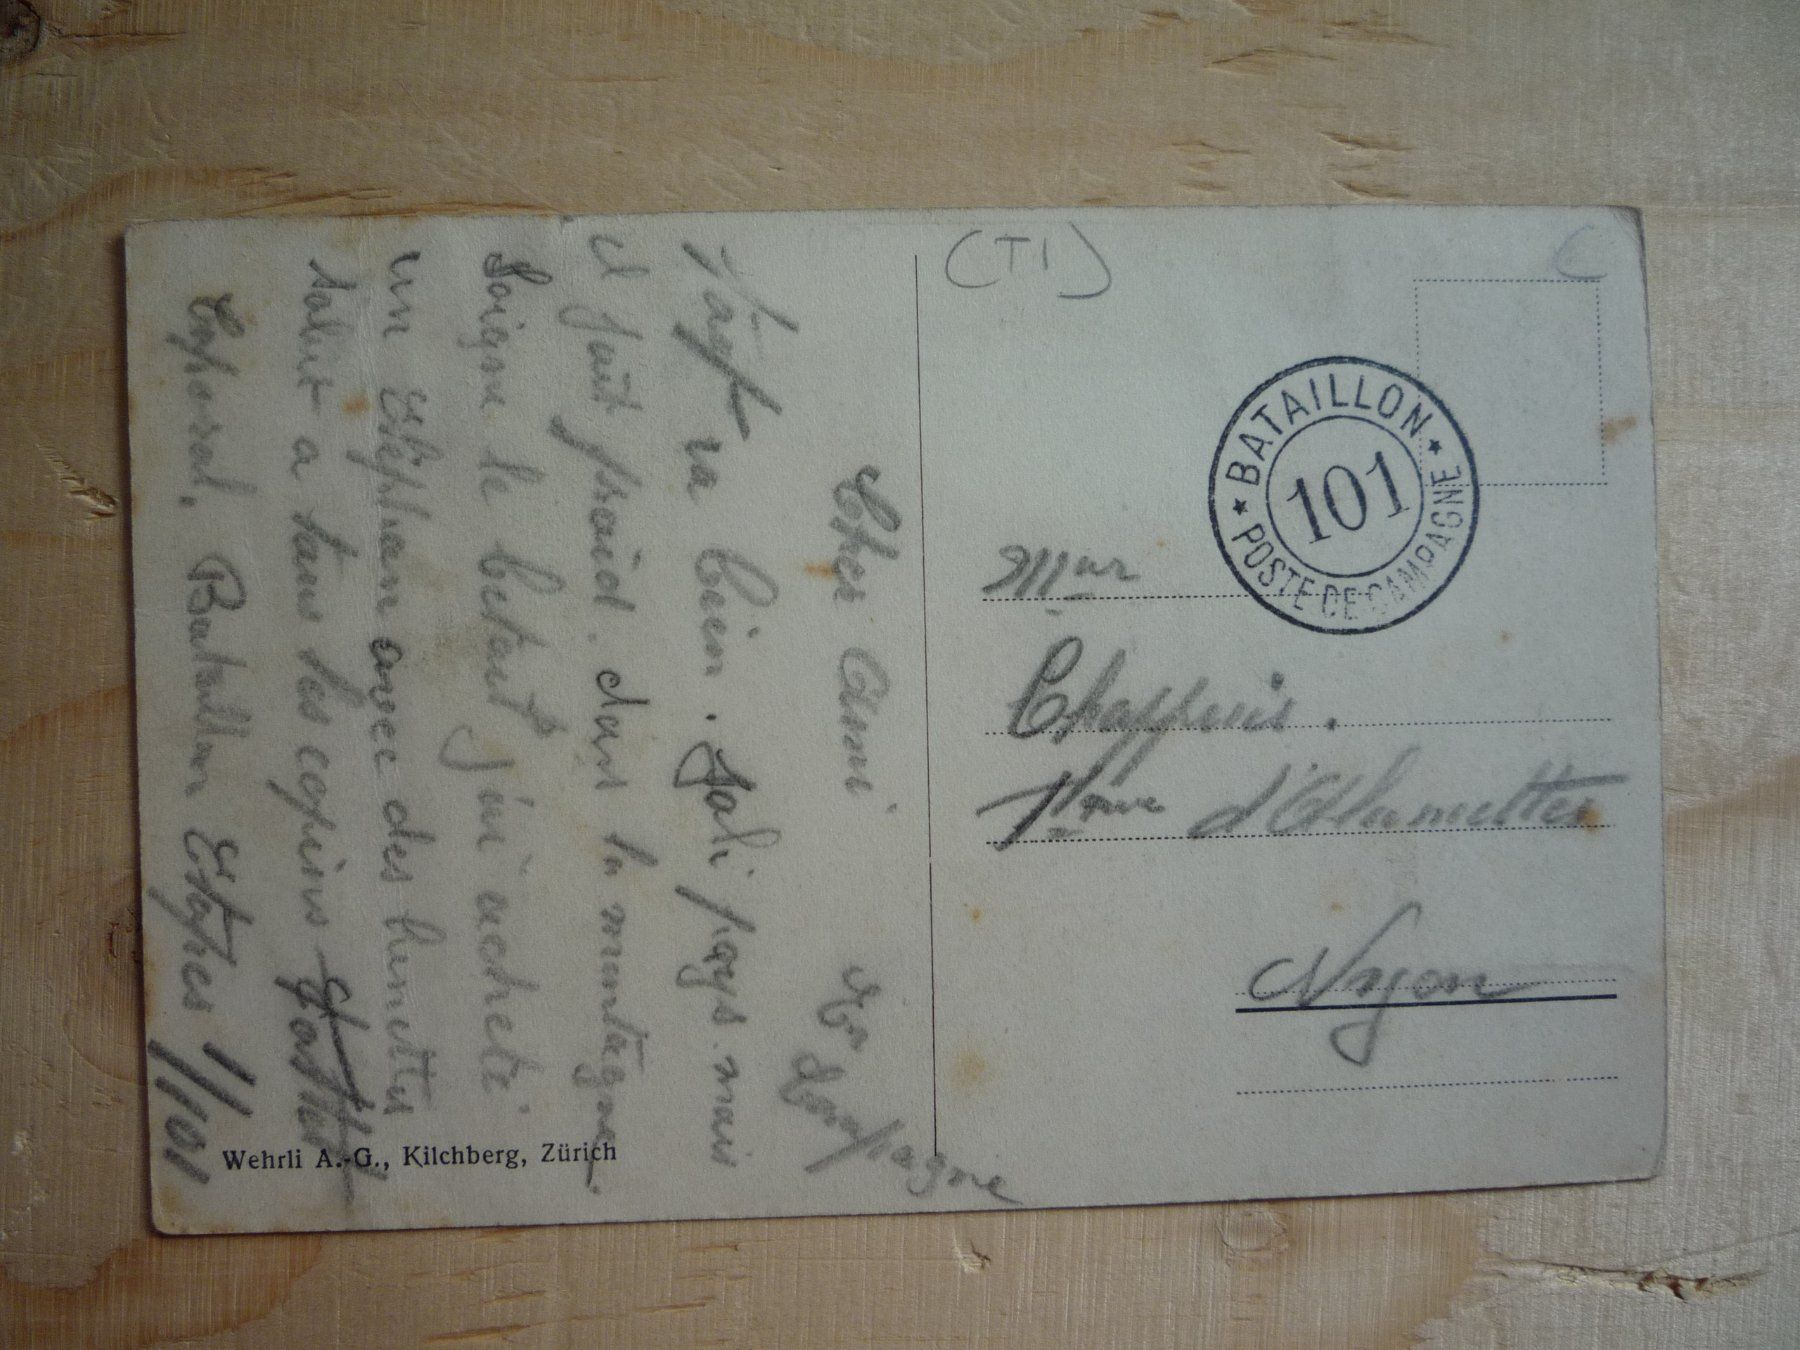 Cher Ami En Campagne
va bien. Joli pays. mais
il fait froid. dans la montagne.
Soigne le betail j'ai acheté
un Elephan avec des lunettes
salut a tous les copins
Caporal. Bataillon Etapes 1/101
Wehrli A.-G., Kilchberg, Zürich
(TI)
C
BATAILLON
101
POSTE DE CAMPAGNE
Mr
Chappuis.
d'Allumettes
Nyon